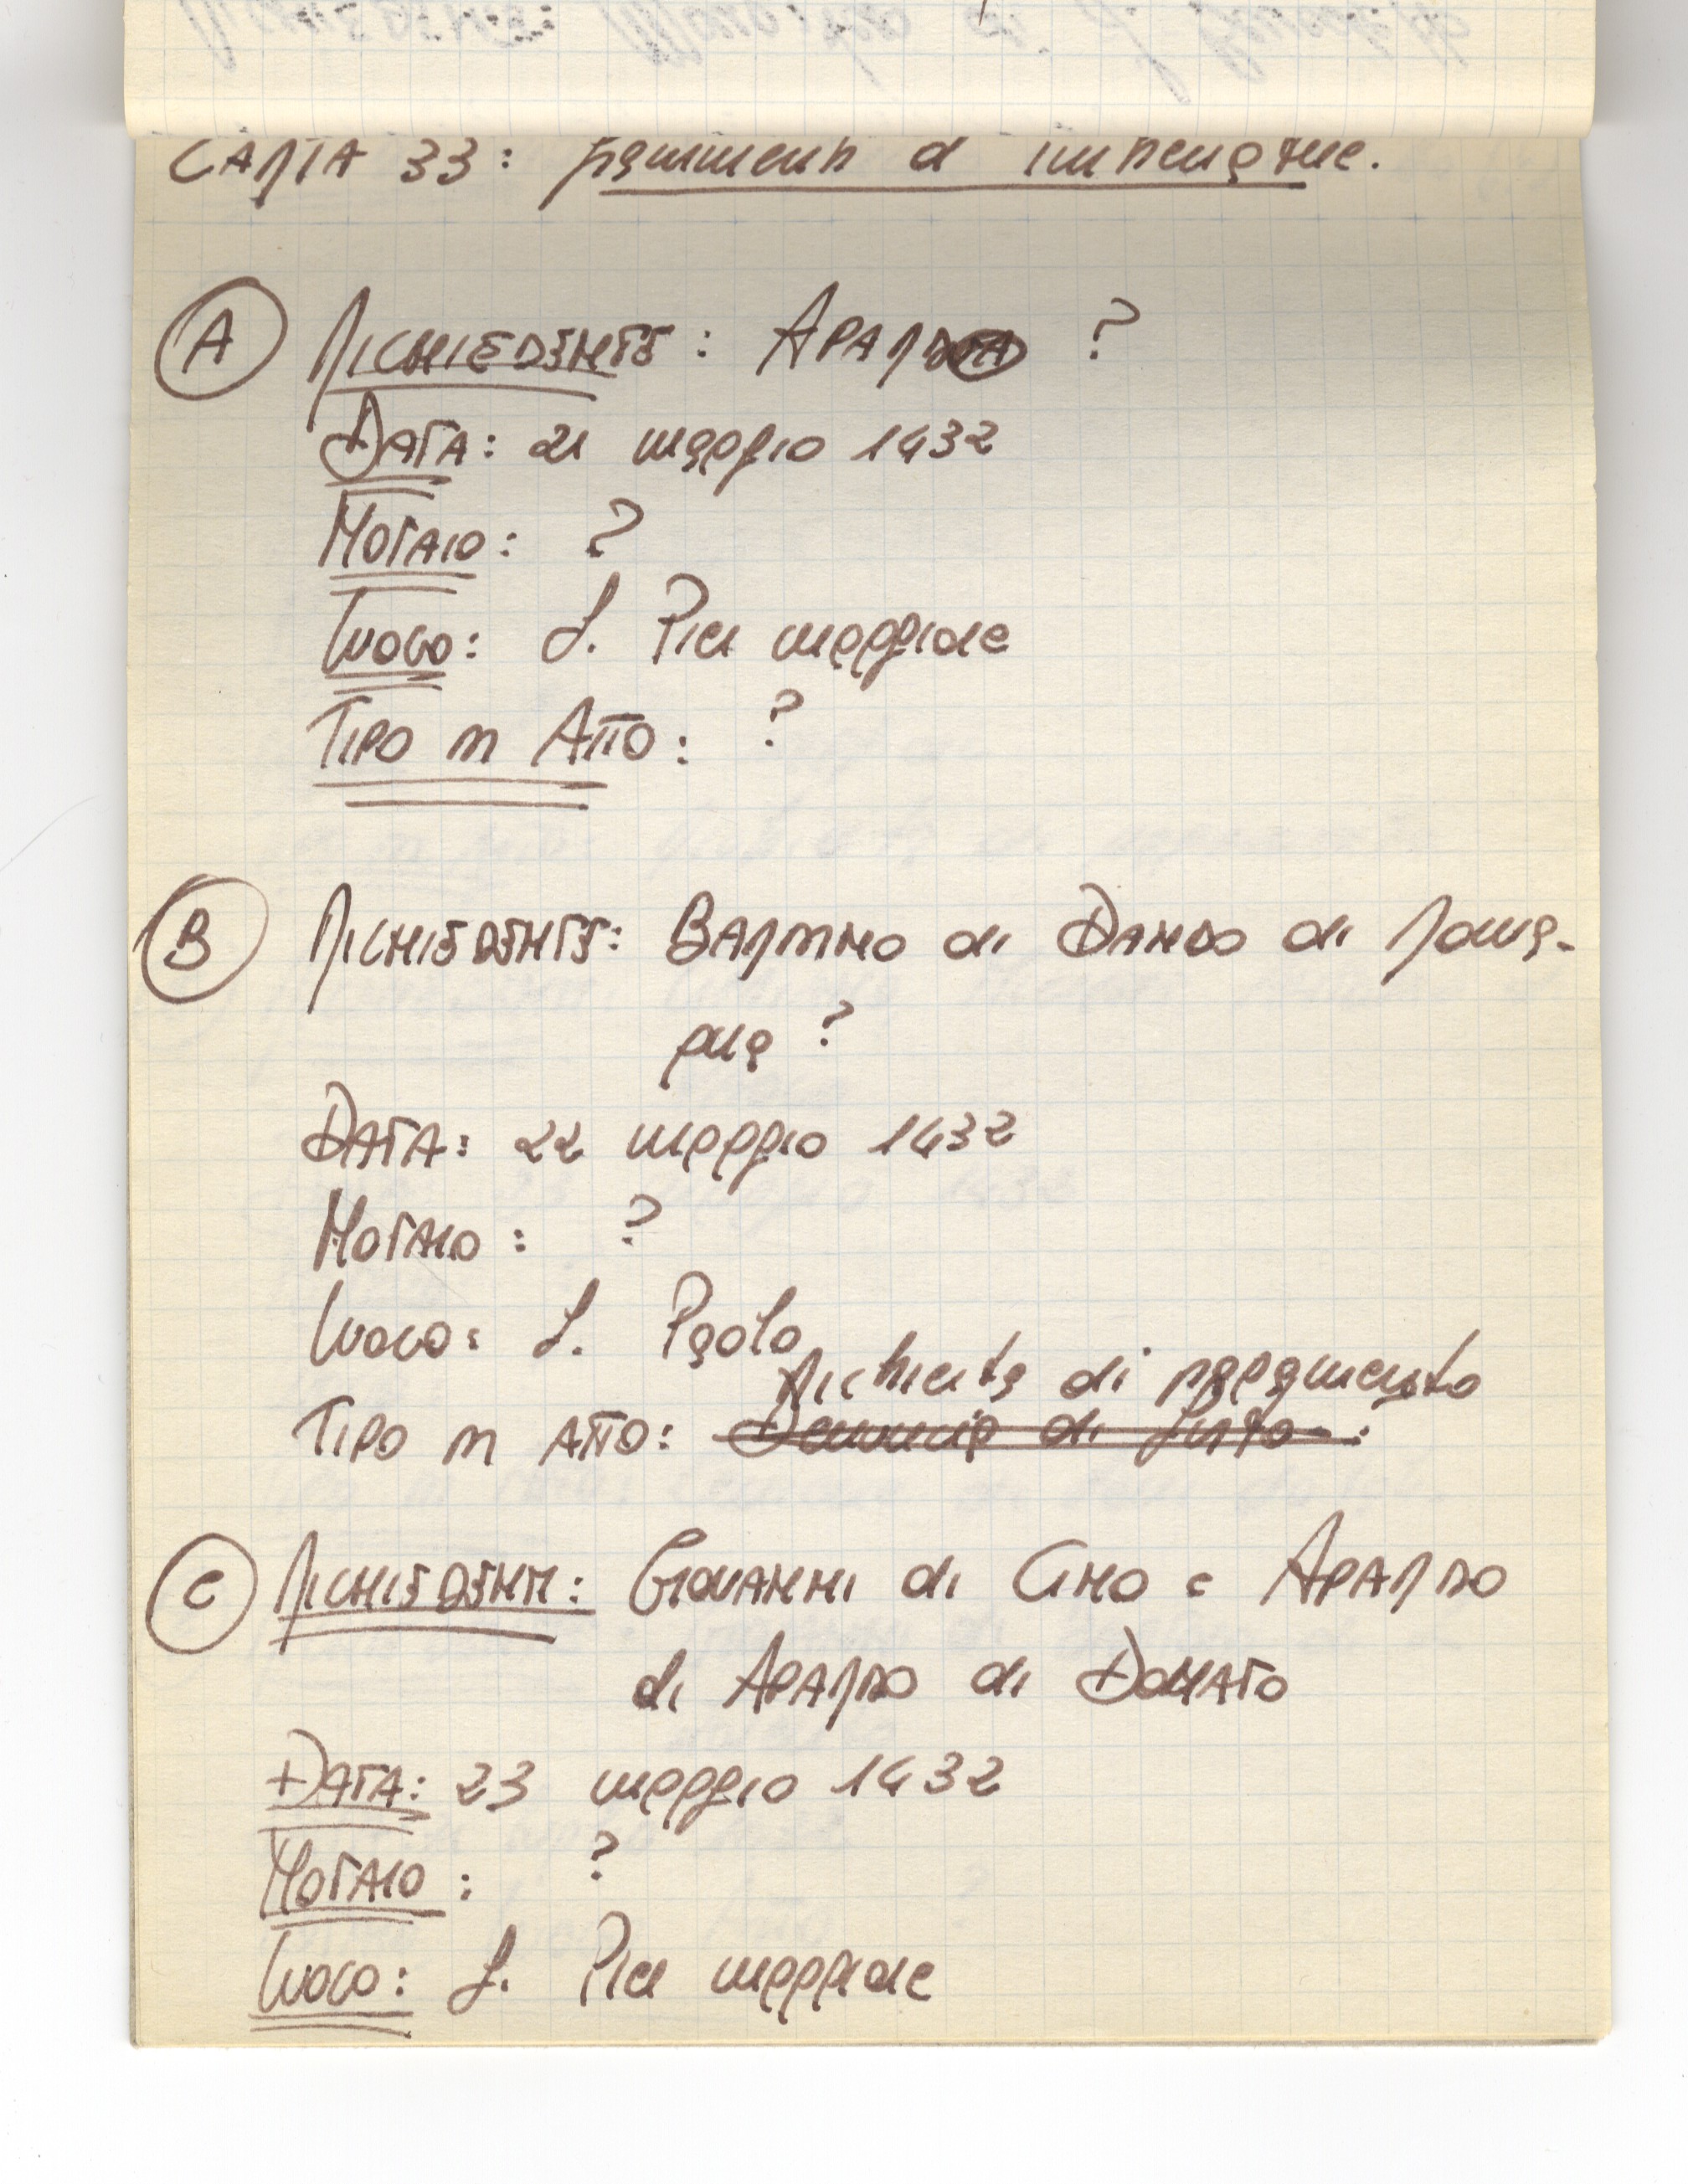 CARTA 33: frammenti d
A RICHIEDENTE: APARDO ?
DATA: 21 maggio 1432
NOTAIO: ?
LUOGO: S. Pier maggiore
TIPO DI ATTO: ?
B RICHIEDENTE: BARTINO di DANDO di Roma-
gna ?
DATA: 22 maggio 1432
NOTAIO: ?
LUOGO: S. Paolo
Richiesta di pagamento
TIPO DI ATTO: Denuncia di furto.
C RICHIEDENTI: GIOVANNI di CINO e APARDO
di APARDO di DONATO
DATA: 23 maggio 1432
NOTAIO: ?
LUOGO: S. Pier maggiore